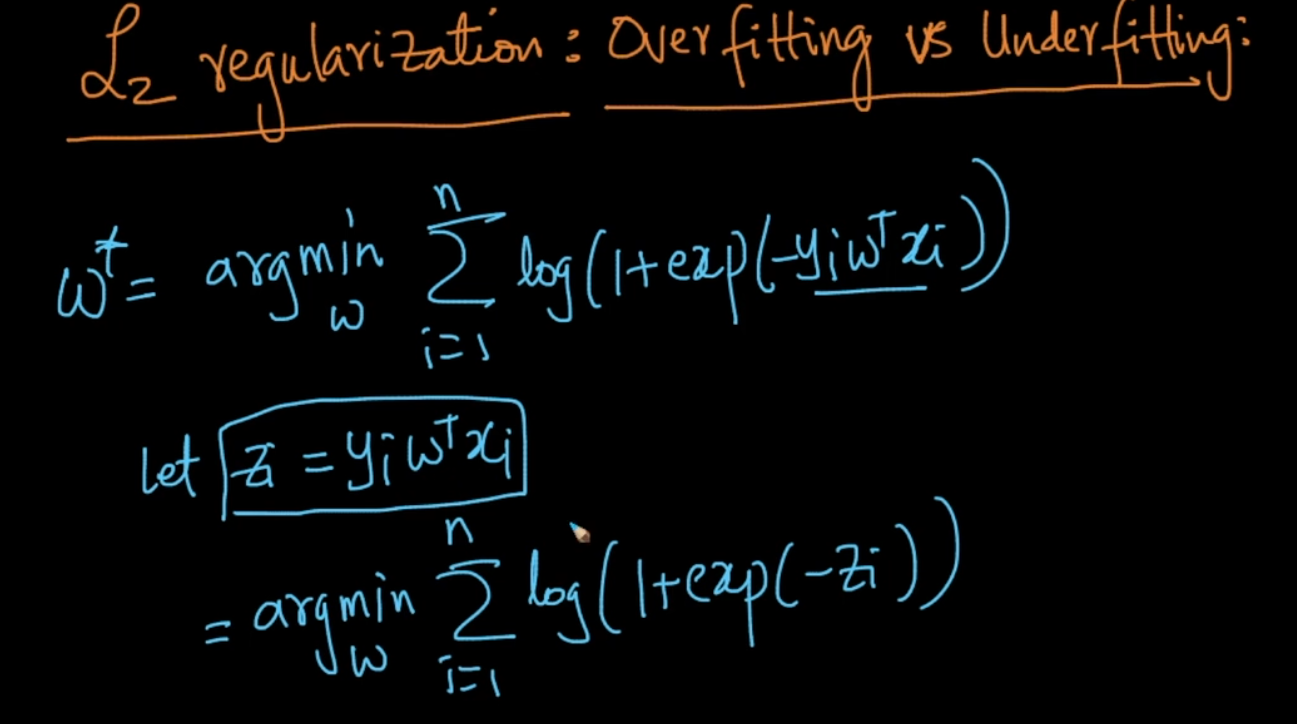 L₂ regularization: Overfitting vs Underfitting:
w* = argmin_w Σ_{i=1}^{n} log(1+exp(-yᵢwᵀxᵢ))
let zᵢ = yᵢwᵀxᵢ
= argmin_w Σ_{i=1}^{n} log(1+exp(-zᵢ))